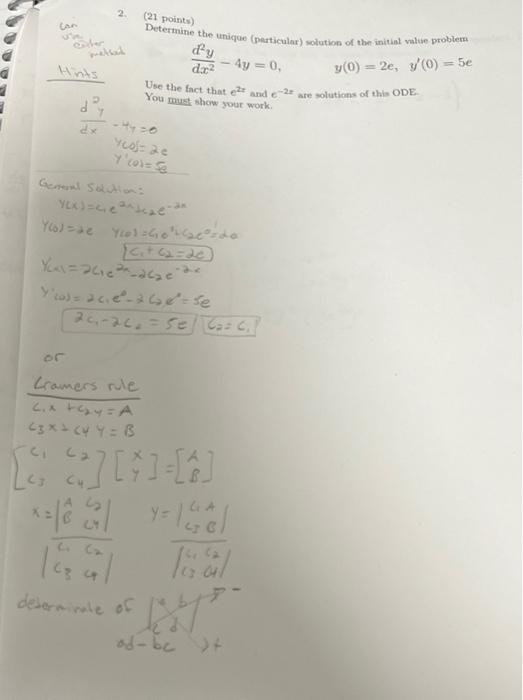 2. (21 points)
Determine the unique (particular) solution of the initial value problem
d²y/dx² − 4y = 0, y(0) = 2e, y′(0) = 5e
Use the fact that e^{2x} and e^{−2x} are solutions of this ODE.
You must show your work.
can
use
either
method
Hints
d²y/dx - 4y = 0
y(0) = 2e
y'(0) = 5e
General Solution:
y(x) = c₁e^{2x} + c₂e^{-2x}
y(0) = 2e y(0) = c₁e⁰ + c₂e⁰ = 2e
c₁ + c₂ = 2e
= 2c₁e^{2x} - 2c₂e^{-2x}
y'(0) = 2c₁e⁰ - 2c₂e⁰ = 5e
2c₁ - 2c₂ = 5e
or
Cramers rule
c₁x + c₂y = A
c₃x + c₄y = B
[c₁ c₂
c₃ c₄] [x
y] = [A
B]
x = |A c₂
B c₄| y = |c₁ A
c₃ B|
|c₁ c₂
c₃ c₄| |c₁ c₂
c₃ c₄|
of |a b
c d| -
ad - bc +